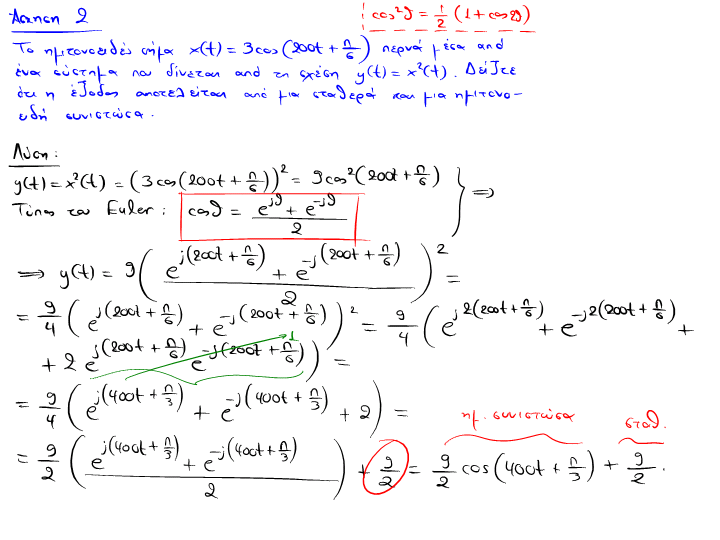 Άσκηση 2
cos²θ = 1/2 (1 + cos2θ)
Το ημιτονοειδές σήμα x(t) = 3cos(200t + π/6) περνά μέσα από
ένα σύστημα που δίνεται από τη σχέση y(t) = x²(t). Δείξτε
ότι η έξοδος αποτελείται από μια σταθερά και μια ημιτονο-
ειδή συνιστώσα.
Λύση:
y(t) = x²(t) = (3cos(200t + π/6))² = 9cos²(200t + π/6)
Τύπος του Euler: cosθ = (e^{jθ} + e^{-jθ})/2 } ⟹
⟹ y(t) = 9( (e^{j(200t + π/6)} + e^{-j(200t + π/6)})/2 )² =
= 9/4 ( e^{j(200t + π/6)} + e^{-j(200t + π/6)} )² = 9/4 ( e^{j2(200t + π/6)} + e^{-j2(200t + π/6)} +
+ 2 e^{j(200t + π/6)} e^{-j(200t + π/6)} ) = 1
= 9/4 ( e^{j(400t + π/3)} + e^{-j(400t + π/3)} + 2 ) =
ημ. συνιστώσα σταθ.
= 9/2 ( (e^{j(400t + π/3)} + e^{-j(400t + π/3)})/2 ) + 9/2 = 9/2 cos(400t + π/3) + 9/2.